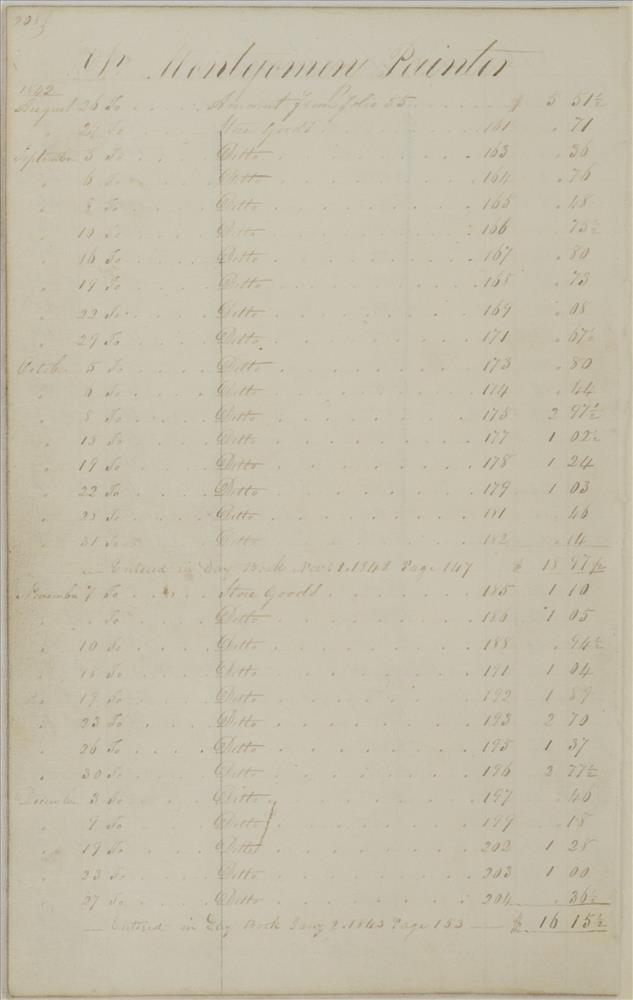 208
Dr Montgomery Painter
1842
August 26 To . . . . Amount from folio 55 . . . . $ 5 51½
" To . . . . Store Goods . . . . 161 . 71
September 5 To . . . . Ditto . . . . 163 . 36
" 6 To . . . . Ditto . . . . 164 . 76
" 8 To . . . . Ditto . . . . 165 . 48
" 10 To . . . . Ditto . . . . 166 . 75½
" 16 To . . . . Ditto . . . . 167 . 80
" 19 To . . . . Ditto . . . . 168 . 73
" 22 To . . . . Ditto . . . . 169 . 08
" 29 To . . . . Ditto . . . . 171 . 67½
October 5 To . . . . Ditto . . . . 173 . 80
" To . . . . Ditto . . . . 174 . 44
" 8 To . . . . Ditto . . . . 175 2 97½
" 15 To . . . . Ditto . . . . 177 1 02½
" 19 To . . . . Ditto . . . . 178 1 24
" 22 To . . . . Ditto . . . . 179 1 03
" To . . . . Ditto . . . . 181 . 46
" 31 To . . . . Ditto . . . . 182 . 14
— Entered in Day Book Nov. 1. 1842 Page 147 $ 18 97½
November 7 To . . . . Store Goods . . . . 185 1 10
" . To . . . . Ditto . . . . 186 1 05
" 10 To . . . . Ditto . . . . 188 . 94½
" 18 To . . . . Ditto . . . . 191 1 04
" 19 To . . . . Ditto . . . . 192 1 89
" 23 To . . . . Ditto . . . . 193 2 70
" 26 To . . . . Ditto . . . . 195 1 37
" 30 To . . . . Ditto . . . . 196 2 77½
December 3 To . . . . Ditto . . . . 197 . 46
" 9 To . . . . Ditto . . . . 199 . 18
" 19 To . . . . Ditto . . . . 202 1 28
" 23 To . . . . Ditto . . . . 203 1 00
" 27 To . . . . Ditto . . . . 204 . 36½
— Entered in Day Book Jany 2. 1843 Page 153 — $ 16 15½